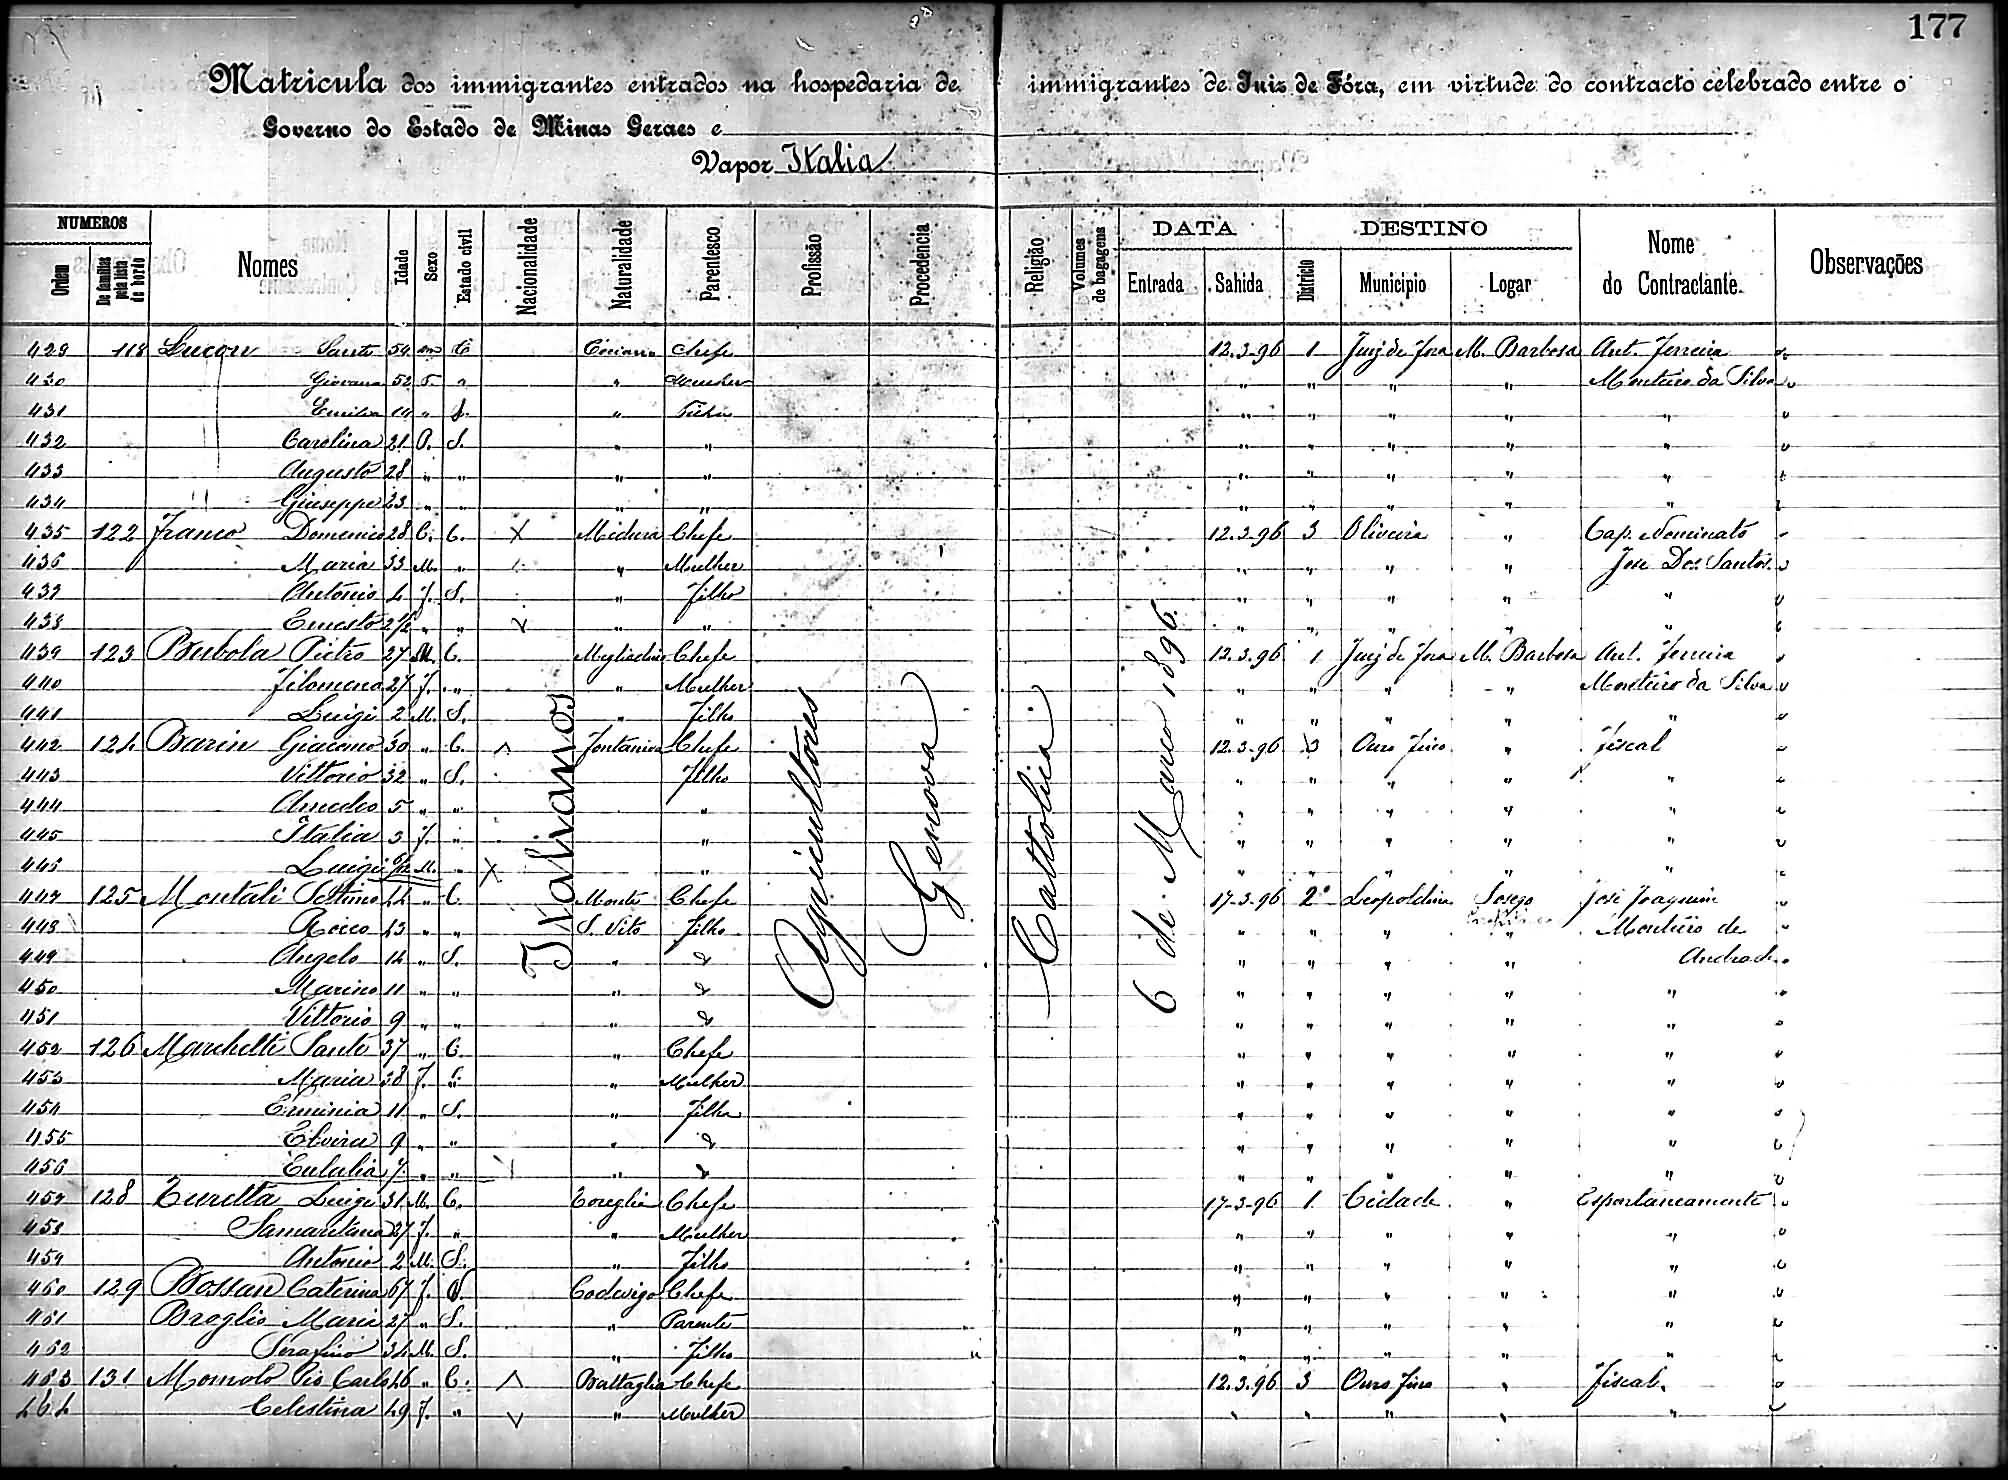 177
Matricula dos immigrantes entrados na hospedaria de immigrantes de Juiz de Fóra, em virtude do contracto celebrado entre o
Governo do Estado de Minas Geraes e
Vapor Italia
NUMEROS DATA DESTINO
Ordem De familias pela lista de bordo Nomes Idade Sexo Estado civil Nacionalidade Naturalidade Parentesco Profissão Procedencia Religião Volumes de bagagens Entrada Sahida Districto Municipio Logar Nome do Contractante Observações
Italianos Agricultores Genova Cattolica 6 de Março 1896
429 118 Lucon Santo 54 C Chefe 12.3.96 1 Juiz de Fora M. Barbosa Ant. Ferreira
430 Giovana 52 " " Mulher " " " " Monteiro da Silva
431 Emilia " " " " " " "
432 Carolina 21 S. " " " " " " "
433 Augusto 28 " " " " " " " " "
434 Giuseppe 23 " " " " " " " " "
435 122 Franco Domenico 28 C. X Chefe 12.3.96 3 Oliveira " Cap.
436 Maria 33 M. " " Mulher " " " " José Dos Santos
437 Antonio 4 f. S. " Filho " " " " "
438 Ernesto " " " " " " " " "
439 123 Bubola Pietro 27 M. C. Chefe 12.3.96 1 Juiz de Fora M. Barbosa Ant. Ferreira
440 Filomena 27 f. " " Mulher " " " " Monteiro da Silva
441 Luigi 2 M. S. " Filho " " " " "
442 124 Barin Giacomo 30 " C. Fontaniva Chefe 12.3.96 3 Ouro Fino " Fiscal
443 Vittorio 32 " S. Filho " " " " "
444 Amedeo 5 " " " " " " " "
445 Italia 3 f. " " " " " " "
446 Luigi M. " X " " " " " "
447 125 Montali Settimo 44 " C Monte Chefe 17-3-96 2º Leopoldina Sosego José Joaquim
448 Rocco 43 " " S. Vito Filho " " " " Monteiro de
449 Angelo 14 " S. " " " " " Andrade
450 Marino 11 " " " " " " " "
451 Vittorio 9 " " " " " " " "
452 126 Marchetti Sante 37 " C. " Chefe " " " " "
453 Maria 38 f. " " Mulher " " " " "
454 Erminia 11 " S. " Filha " " " " "
455 Elvira 9 " " " " " " " "
456 Eulalia 7 " " " " " " " "
457 128 Turetta Luigi 31 M. C. Toreglia Chefe 17-3-96 1. Cidade " Espontaneamente
458 Samaritana 27 f. " " Mulher " " " " "
459 Antonio 2 M. S. " Filho " " " " "
460 129 Bossan Caterina 67 f. Codevigo Chefe " " " " "
461 Broglio Maria 27 " S. " Parente " " " " "
462 Serafino 34 M. S. " Filho " " " " "
463 131 Momolo Pio Carlo 46 " C. Battaglia Chefe 12.3.96 3 Ouro Fino " Fiscal.
464 Celestina 49 f. " " Mulher " " " " "